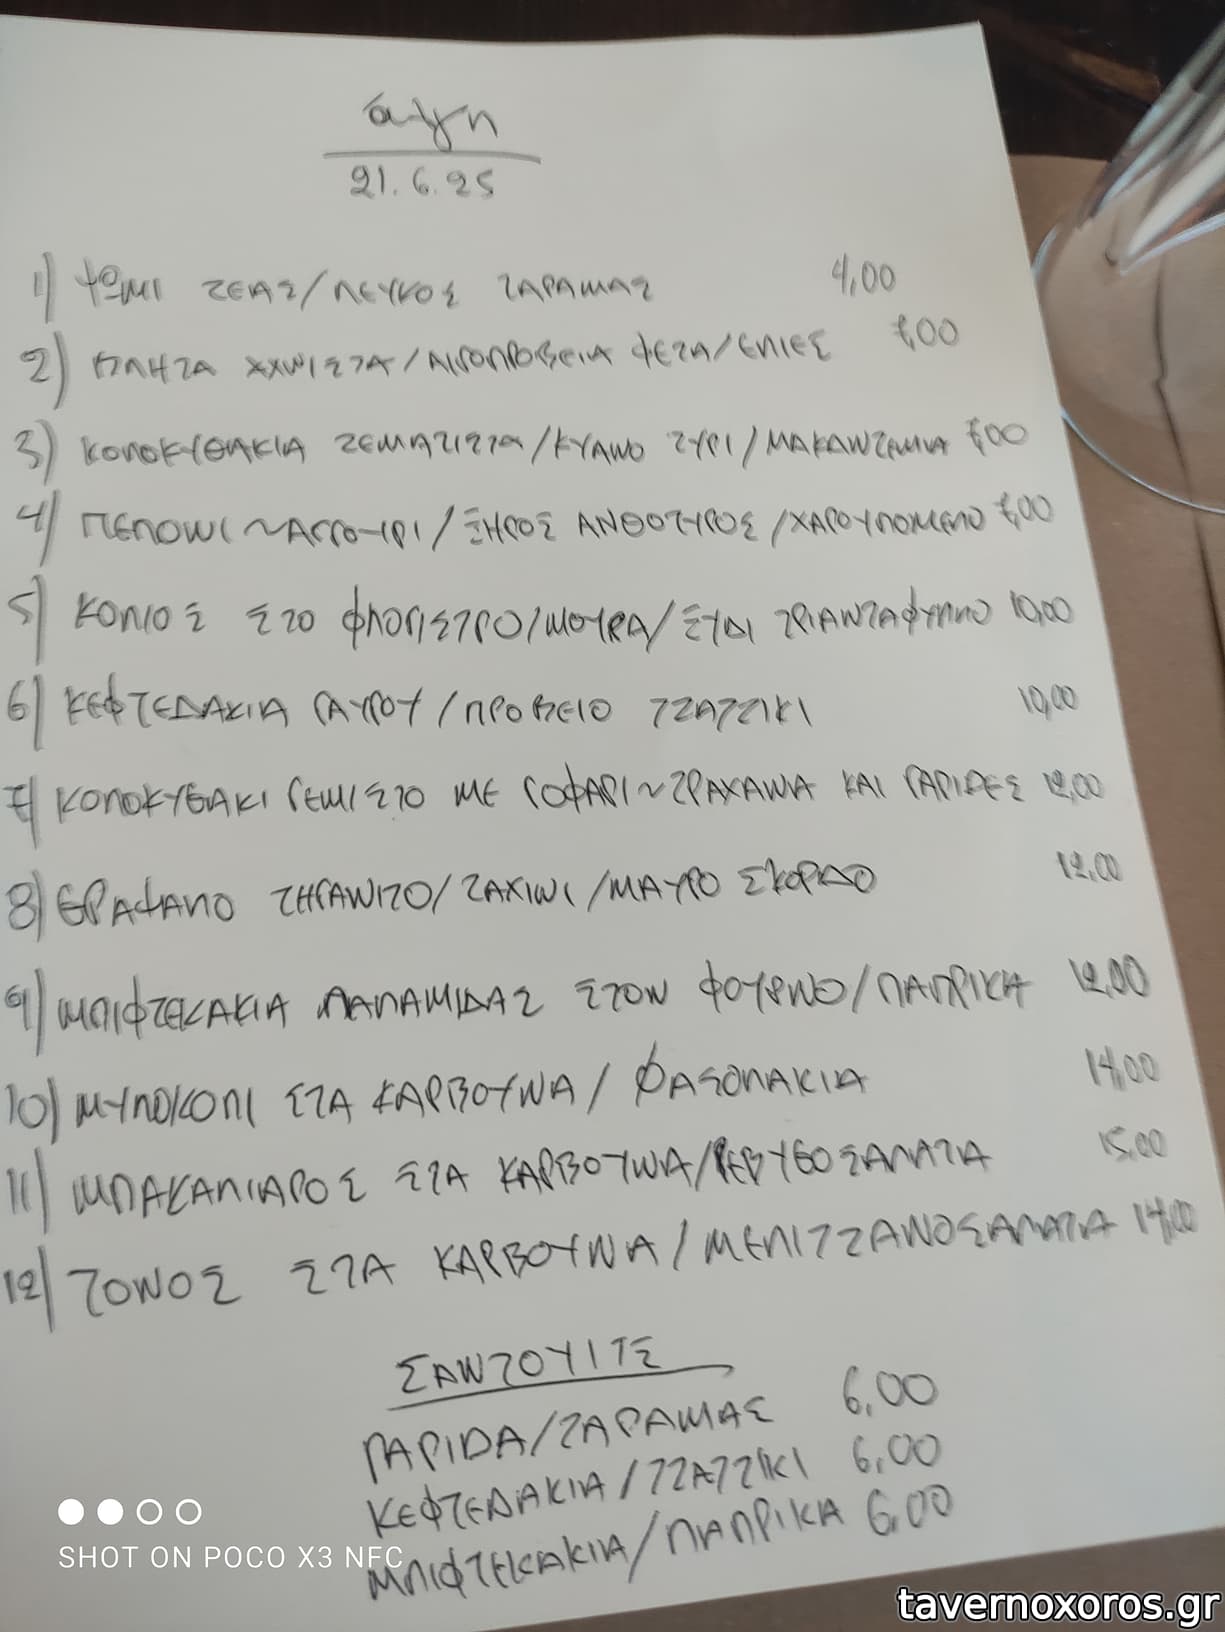 άλμη
21.6.25
1) ΨΩΜΙ ΖΕΑΣ/ΛΕΥΚΟΣ ΤΑΡΑΜΑΣ 4,00
2) ΒΛΗΤΑ ΑΧΝΙΣΤΑ/ΑΙΓΟΠΡΟΒΕΙΑ ΦΕΤΑ/ΕΛΙΕΣ 7,00
3) ΚΟΛΟΚΥΘΑΚΙΑ ΖΕΜΑΤΙΣΤΑ/ΚΥΑΝΟ ΤΥΡΙ/ΜΑΚΑΝΤΑΜΙΑ 7,00
4) ΠΕΠΟΝΙ ~ ΑΓΓΟΥΡΙ/ΞΗΡΟΣ ΑΝΘΟΤΥΡΟΣ/ΧΑΡΟΥΠΟΜΕΛΟ 7,00
5) ΚΟΛΙΟΣ ΣΤΟ ΦΛΟΓΙΣΤΡΟ/ΜΟΥΡΑ/ΞΥΔΙ ΤΡΙΑΝΤΑΦΥΛΛΟ 10,00
6) ΚΕΦΤΕΔΑΚΙΑ ΓΑΥΡΟΥ/ΠΡΟΒΕΙΟ ΤΖΑΤΖΙΚΙ 10,00
7) ΚΟΛΟΚΥΘΑΚΙ ΓΕΜΙΣΤΟ ΜΕ ΓΟΦΑΡΙ ~ ΤΡΑΧΑΝΑ ΚΑΙ ΓΑΡΙΔΕΣ 12,00
8) ΘΡΑΨΑΛΟ ΤΗΓΑΝΙΤΟ/ΤΑΧΙΝΙ/ΜΑΥΡΟ ΣΚΟΡΔΟ 12,00
9) ΜΠΙΦΤΕΚΑΚΙΑ ΠΑΛΑΜΙΔΑΣ ΣΤΟΝ ΦΟΥΡΝΟ/ΠΑΠΡΙΚΑ 12,00
10) ΜΥΛΟΚΟΠΙ ΣΤΑ ΚΑΡΒΟΥΝΑ/ΦΑΣΟΛΑΚΙΑ 14,00
11) ΜΠΑΚΑΛΙΑΡΟΣ ΣΤΑ ΚΑΡΒΟΥΝΑ/ΡΕΒΥΘΟΣΑΛΑΤΑ 15,00
12) ΤΟΝΟΣ ΣΤΑ ΚΑΡΒΟΥΝΑ/ΜΕΛΙΤΖΑΝΟΣΑΛΑΤΑ 14,00
ΣΑΝΤΟΥΙΤΣ
ΓΑΡΙΔΑ/ΤΑΡΑΜΑΣ 6,00
ΚΕΦΤΕΔΑΚΙΑ/ΤΖΑΤΖΙΚΙ 6,00
ΜΠΙΦΤΕΚΑΚΙΑ/ΠΑΠΡΙΚΑ 6,00
SHOT ON POCO X3 NFC
tavernoxoros.gr